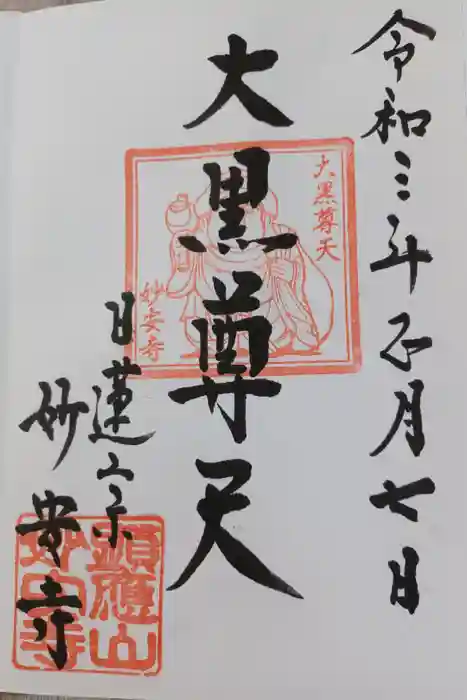 令和三年正月七日
大黒尊天
大黒尊天
妙安寺
日蓮宗
妙安寺
顕應山
妙安寺